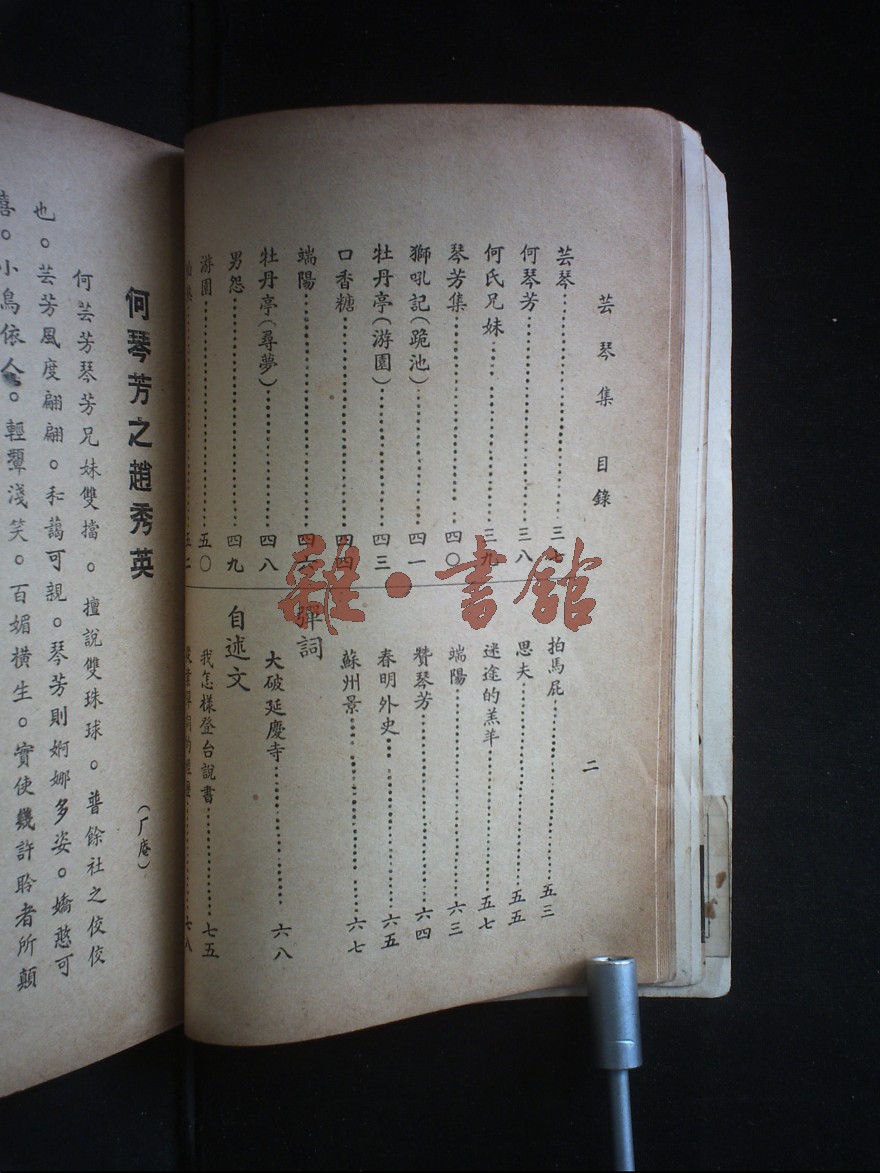 芸琴集 目錄
二
芸琴………三七
何琴芳………三八
何氏兄妹………三九
琴芳集………四〇
獅吼記(跪池)………四一
牡丹亭(游園)………四三
口香糖………四四
端陽………四六
牡丹亭(尋夢)………四八
男怨………四九
游園………五〇
拍馬屁………五三
思夫………五五
迷途的羔羊………五七
端陽………六三
贊琴芳………六四
春明外史………六五
蘇州景………六七
彈詞
大破延慶寺………六八
自述文
我怎樣登台說書………七五
雜·書館
何琴芳之趙秀英
(厂庵)
何芸芳琴芳兄妹雙擋。擅說雙珠球。普餘社之佼佼
也。芸芳風度翩翩。和藹可親。琴芳則婀娜多姿。嬌憨可
喜。小鳥依人。輕顰淺笑。百媚橫生。實使幾許聆者所顛